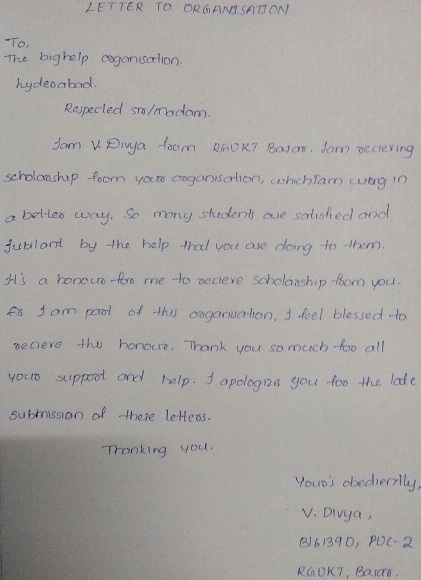 LETTER TO ORGANISATION
To,
The bighelp organisation.
hyderabad.
Respected sir/madam.
Iam V. Divya from RGUKT Basar. Iam recieving
scholarship from your organisation, which Iam using in
a better way. So many students are satisfied and
jubilant by the help that you are doing to them.
It's a honour for me to recieve scholarship from you.
As I am part of this organisation, I feel blessed to
recieve this honour. Thank you so much for all
your support and help. I apologize you for the late
submission of these letters.
Thanking you.
Your's obediently,
V. Divya,
B161390, PUC-2
RGUKT, Basar.